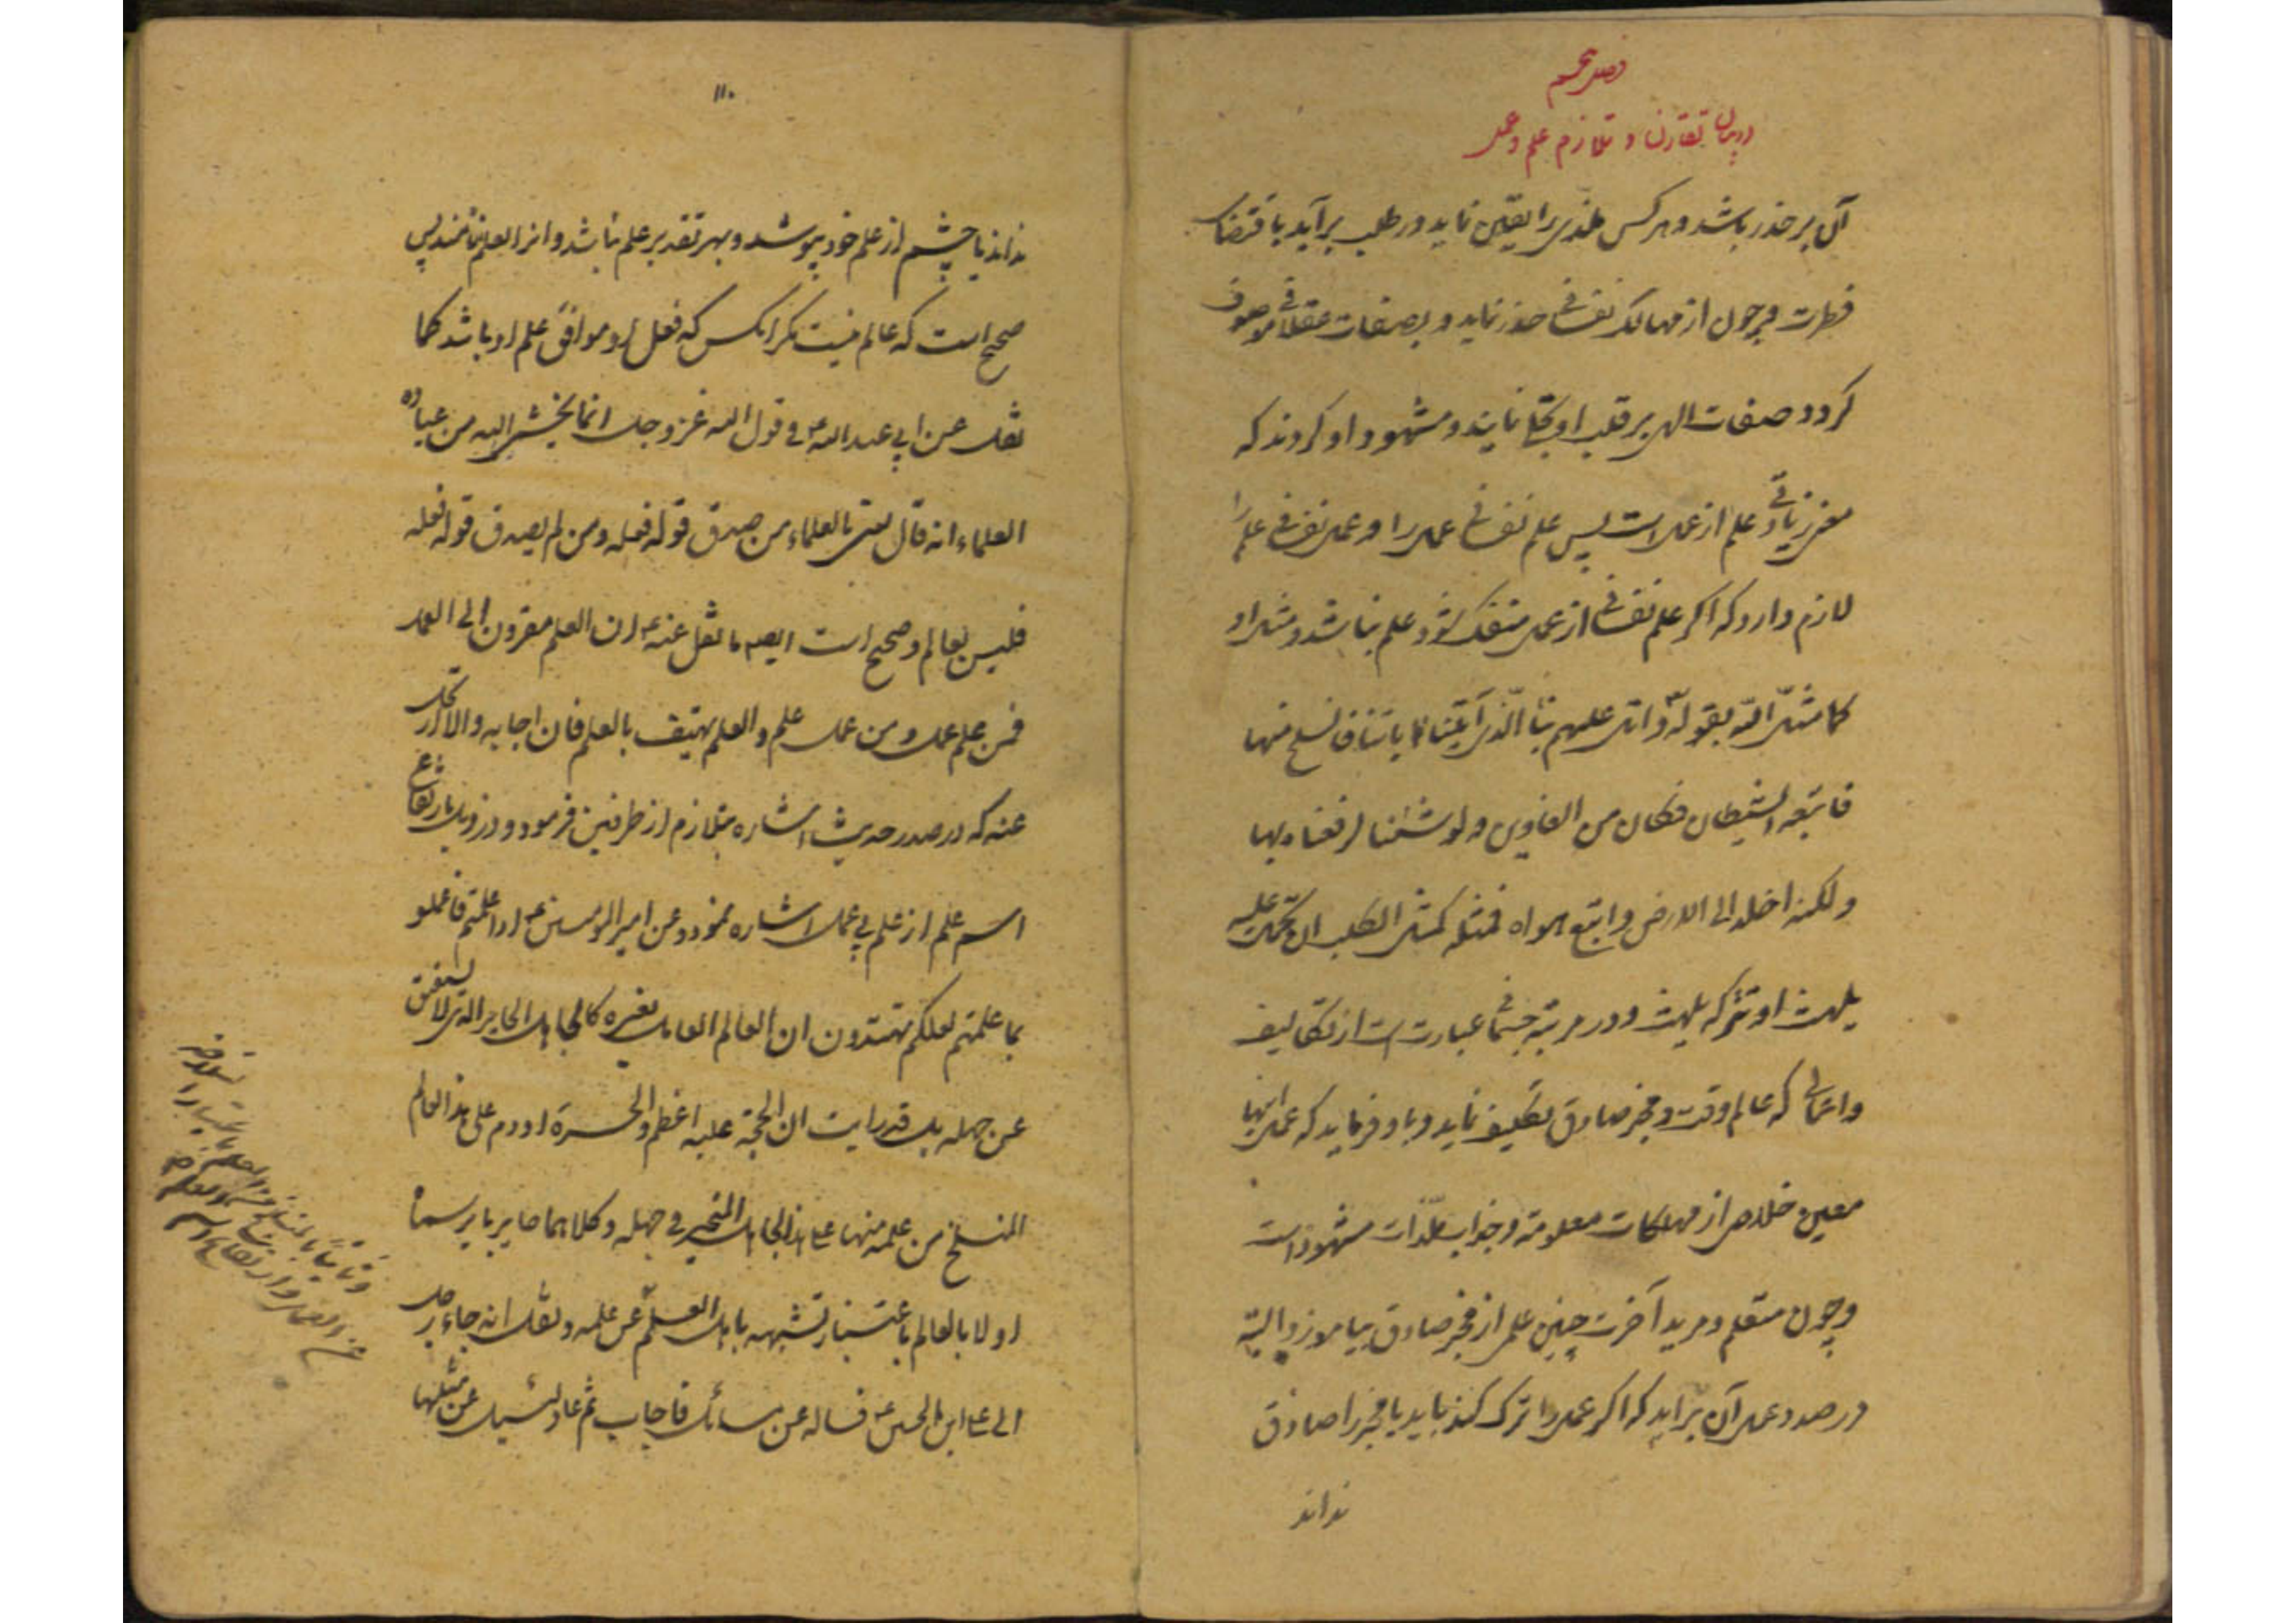 فصل پنجم
در بیان تقارن و تلازم علم و عمل
آن بر حذر باشد و هر کس ملذی را یقین نماید در طلب برآید باقتضای
فطرت و چون از مهالک نفسانی حذر نماید و بصفات عقلانی موصوف
گردد و صفات الهی بر قلب او تجلی نمایند و مشهود او گردند که
علم از عمل است پس علم نفسانی عمل را و عمل نفسانی علم را
لازم دارد که اگر علم نفسانی از عمل منفک شود علم نباشد و مثل او
کما مثل الله بقوله واتل علیهم نبا الذی آتیناه آیاتنا فانسلخ منها
فاتبعه الشیطان فکان من الغاوین ولو شئنا لرفعناه بها
ولکنه اخلد الی الارض واتبع هواه فمثله کمثل الکلب ان تحمل علیه
یلهث او تترکه یلهث و در مرتبه عبارت است از تکالیف
و اعمالی که عالم وقت و مخبر صادق تکلیف نماید و باو فرماید که عمل اینها
معین خلاص از مهلکات معلومه و جذاب ملذات مشهوده است
و چون متعلم و مرید آخرت چنین علم از مخبر صادق بیاموزد البته
در صدد عمل آن برآید که اگر عمل را ترک کند باید یا مخبر را صادق
نداند
۱۱۰
نداند یا چشم از علم خود بپوشد و بهر تقدیر علم نباشد و انرا لعلم نامند پس
صحیح است که عالم نیست مگر انکس که فعل او موافق علم او باشد کما
نقل عن ابی عبد الله ع فی قول الله عز و جل انما یخشی الله من عباده
العلماء انه قال یعنی بالعلماء من صدق قوله فعله و من لم یصدق قوله فعله
فلیس بعالم و صحیح است ایضا ما نقل عنه ع ان العلم مقرون الی العمل
فمن علم عمل و من عمل علم و العلم یهتف بالعلم فان اجابه و الا ارتحل
عنه که در صدر حدیث اشاره بتلازم از طرفین فرمود و در ذیل بارتفاع
اسم علم از علم بی عمل اشاره نمود و عن امیر المؤمنین ع اذا علمتم فاعملو
بما علمتم لعلکم تهتدون ان العالم العامل بغیره کالجاهل الحایر الذی لا یستفیق
عن جهله بل قد رایت ان الحجة علیه اعظم و الحسرة ادوم علی هذا العالم
المنسلخ من علمه منها علی هذا الجاهل المتحیر فی جهله و کلاهما حایر بایر سماه
اولا بالعالم باعتبار تشبهه باهل العلم عن علمه و نقل انه جاء رجل
الی علی ابن الحسین ع فساله عن مسائل فاجاب ثم عاد لیسئل عن مثلها
و ثانیا بالمنسلخ